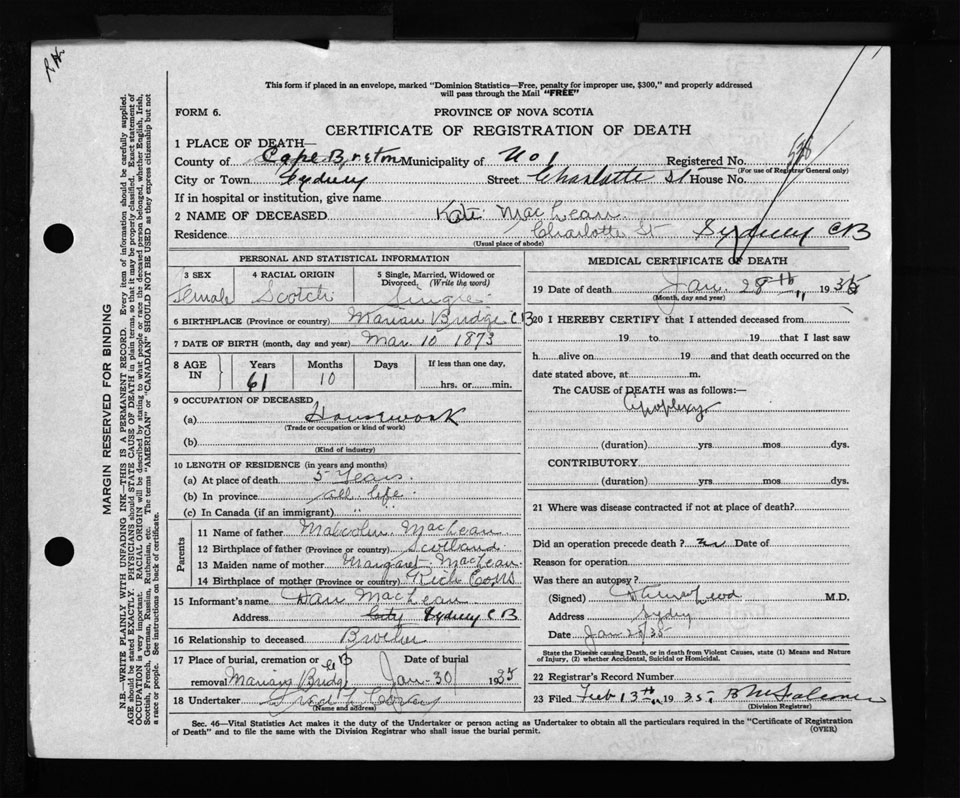 This form if placed in an envelope, marked "Dominion Statistics—Free, penalty for improper use, $300," and properly addressed
will pass through the Mail "FREE"
FORM 6. PROVINCE OF NOVA SCOTIA
CERTIFICATE OF REGISTRATION OF DEATH
1 PLACE OF DEATH—
County of Cape Breton Municipality of No 1 Registered No.
(For use of Registrar General only)
City or Town Sydney Street Charlotte St House No.
If in hospital or institution, give name
2 NAME OF DECEASED Kate MacLean
Residence Charlotte St Sydney CB
(Usual place of abode)
PERSONAL AND STATISTICAL INFORMATION
3 SEX 4 RACIAL ORIGIN 5 Single, Married, Widowed or
Divorced, (Write the word)
Female Scotch Single
6 BIRTHPLACE (Province or country) Marian Bridge CB
7 DATE OF BIRTH (month, day and year) Mar. 10 1873
8 AGE IN Years Months Days If less than one day,
61 10 hrs. or min.
9 OCCUPATION OF DECEASED
(a) Housework
(Trade or occupation or kind of work)
(b)
(Kind of industry)
10 LENGTH OF RESIDENCE (in years and months)
(a) At place of death 5 Years.
(b) In province all life
(c) In Canada (if an immigrant) " "
Parents
11 Name of father Malcolm MacLean
12 Birthplace of father (Province or country) Scotland
13 Maiden name of mother Margaret MacLean
14 Birthplace of mother (Province or country)
15 Informant's name Dan MacLean
Address City Sydney CB
16 Relationship to deceased Brother
17 Place of burial, cremation or CB Date of burial
removal Marian Bridg Jan 30 1935
18 Undertaker Fred
(Name and address)
MEDICAL CERTIFICATE OF DEATH
19 Date of death Jan. 28th, 1935
(Month, day and year)
20 I HEREBY CERTIFY that I attended deceased from
19 to 19 that I last saw
h alive on 19 and that death occurred on the
date stated above, at m.
The CAUSE of DEATH was as follows:—
Apoplexy
(duration) yrs. mos. dys.
CONTRIBUTORY
(duration) yrs. mos. dys.
21 Where was disease contracted if not at place of death?
Did an operation precede death? Date of
Reason for operation
Was there an autopsy?
(Signed) M.D.
Address Sydney
Date Jan 28/35
State the Disease causing Death, or in death from Violent Causes, state (1) Means and Nature
of Injury, (2) whether Accidental, Suicidal or Homicidal.
22 Registrar's Record Number
23 Filed Feb 13th 1935
(Division Registrar)
Sec. 46—Vital Statistics Act makes it the duty of the Undertaker or person acting as Undertaker to obtain all the particulars required in the "Certificate of Registration
of Death" and to file the same with the Division Registrar who shall issue the burial permit. (OVER)
MARGIN RESERVED FOR BINDING
N.B.—WRITE PLAINLY WITH UNFADING INK—THIS IS A PERMANENT RECORD. Every item of information should be carefully supplied.
AGE should be stated EXACTLY. PHYSICIANS should STATE CAUSE OF DEATH in plain terms, so that it may be properly classified. Exact statement of
OCCUPATION is very important. RACIAL ORIGIN will be described by stating to what people or race the deceased person belonged, whether English, Irish,
Scottish, French, German, Russian, Ruthenian, etc. The terms "AMERICAN" or "CANADIAN" SHOULD NOT BE USED as they express citizenship but not
a race or people. See instructions on back of certificate.